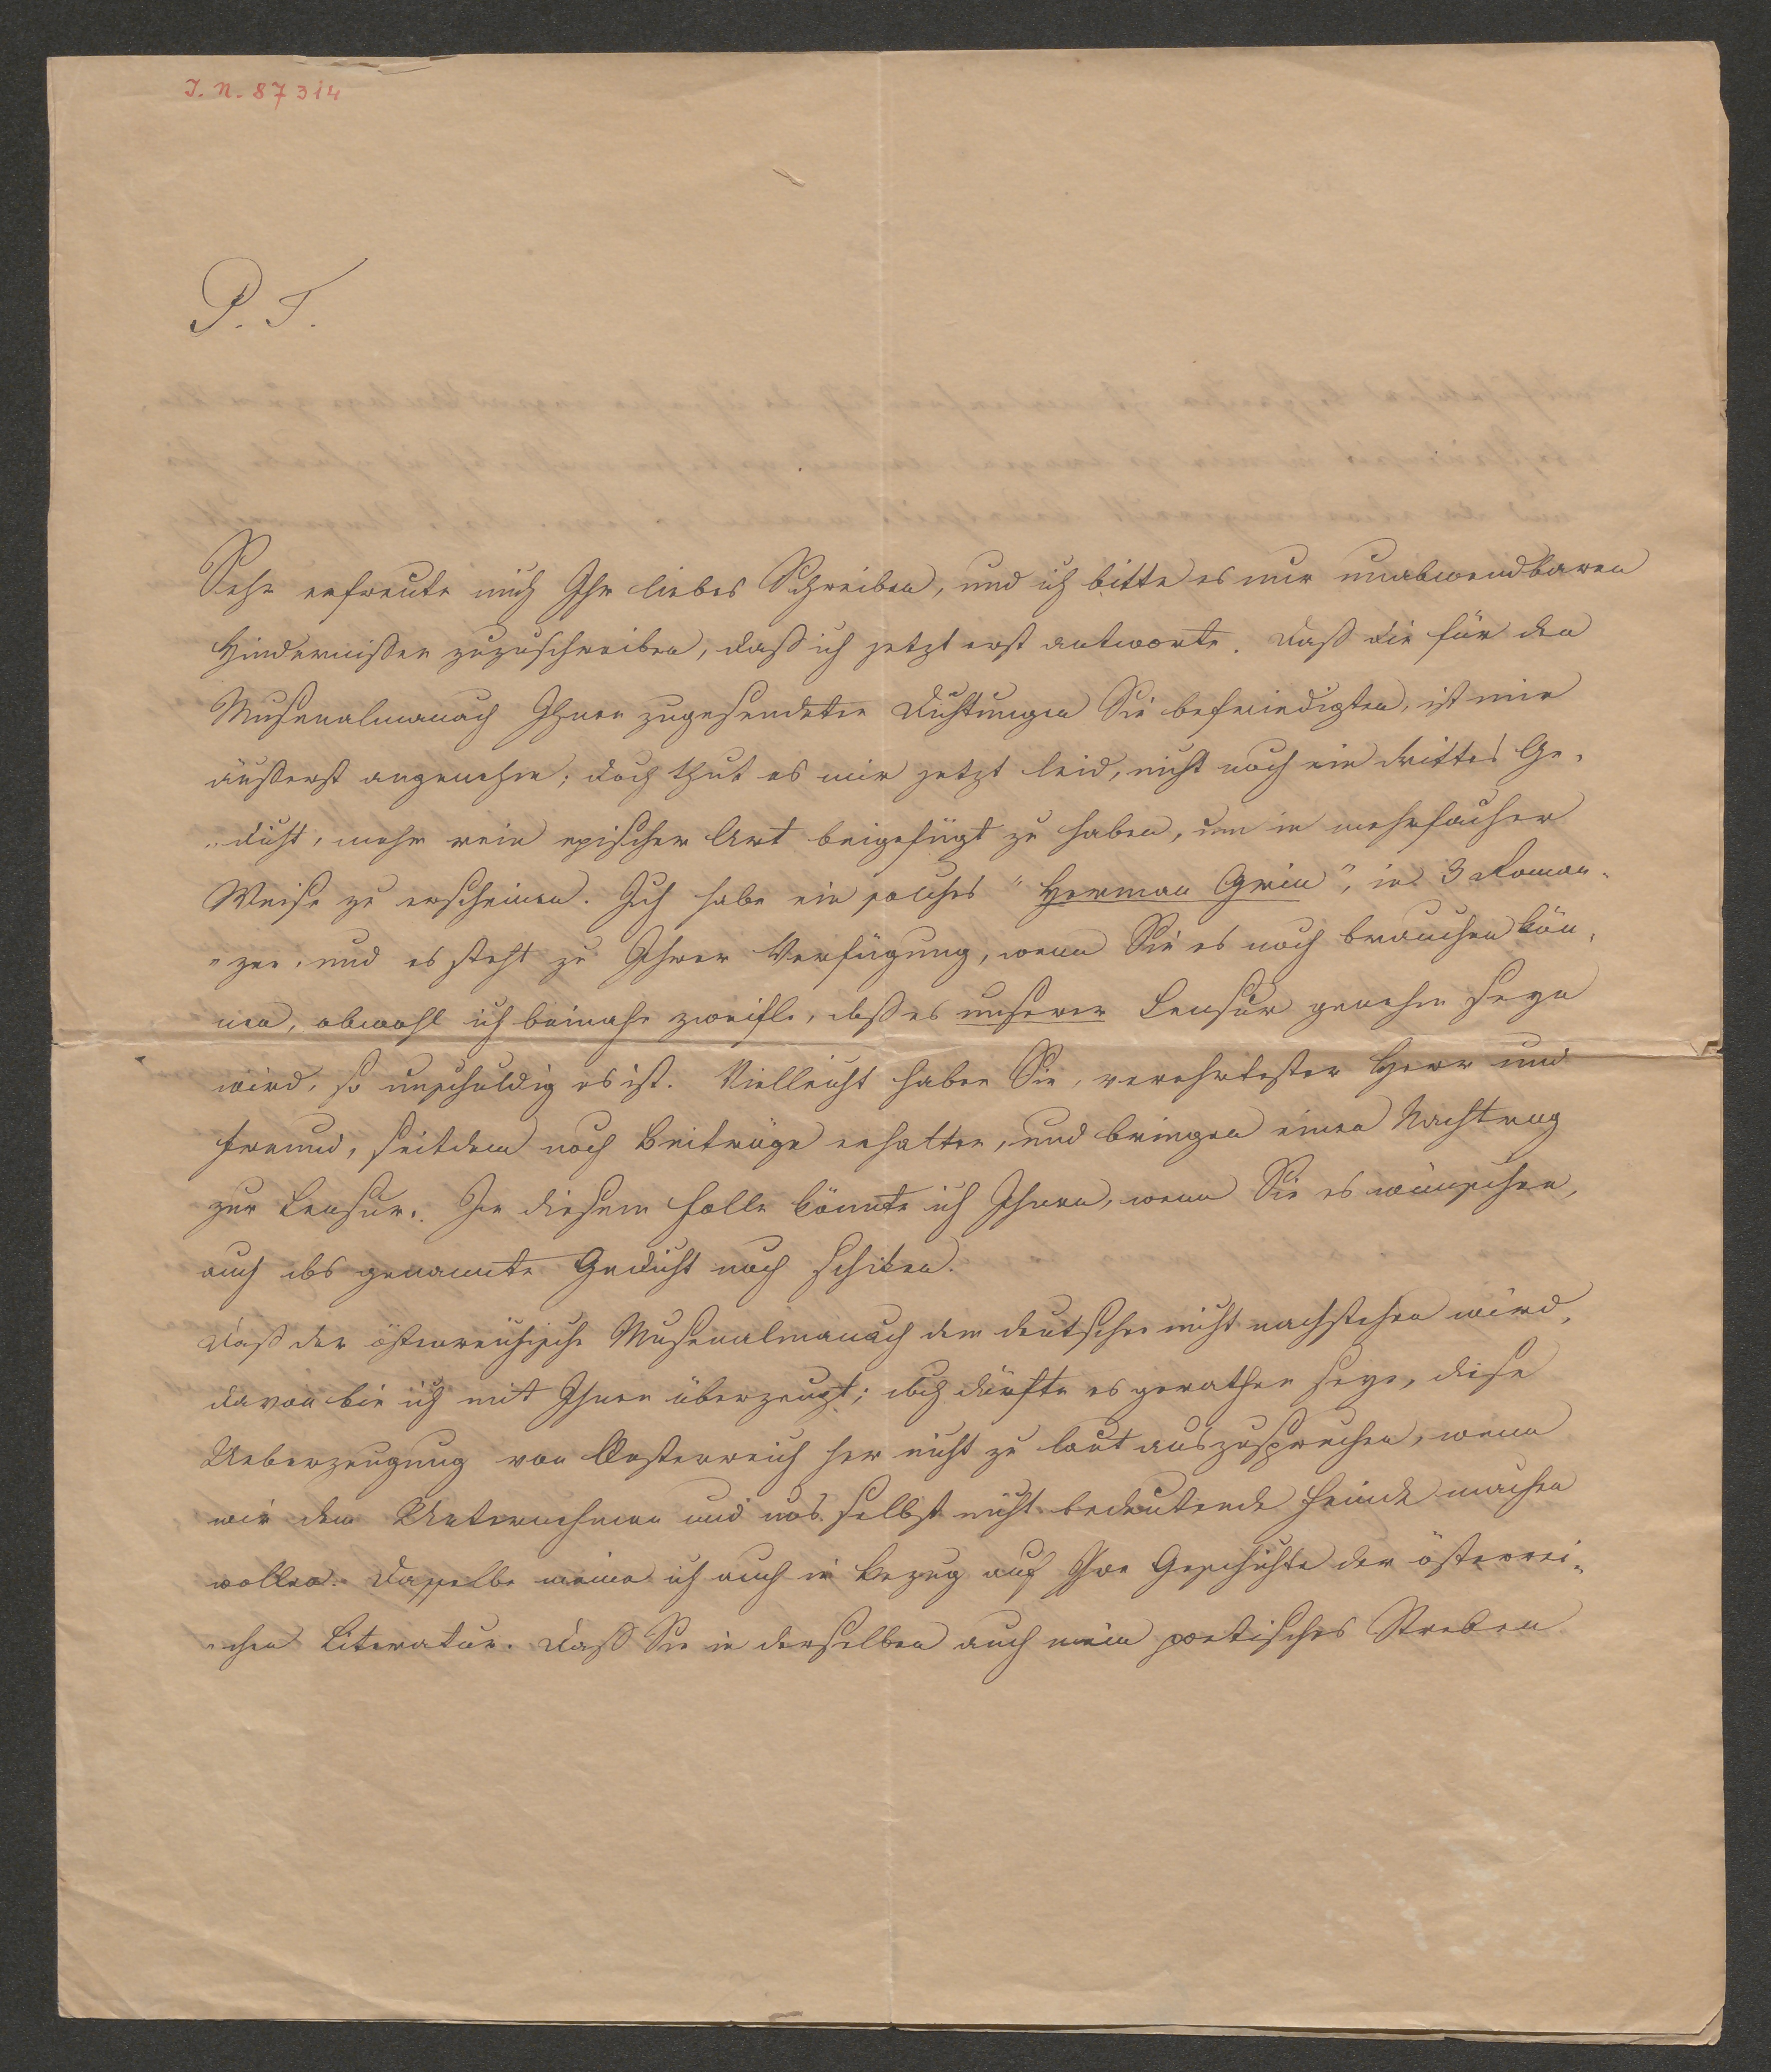 I. N. 87314
P. T.
Sehr erfreute mich Ihr liebes Schreiben, und ich bitte es nur unabwendbaren
Hindernißen zuzuschreiben, daß ich jetzt erst antworte. Daß die für den
Musenalmanach Ihnen zugesendeten Dichtungen Sie befriedigten, ist mir
äußerst angenehm; doch thut es mir jetzt leid, nicht noch ein drittes Ge-
-dicht, mehr rein epischer Art beigefügt zu haben, um in mehrfacher
Weise zu erscheinen. Ich habe ein solches "Herman Grin", in 3 Roman-
-zen, und es steht zu Ihrer Verfügung, wenn Sie es noch brauchen kön-
nen, obwohl ich beinahe zweifle, daß es unserer Censur genehm seyn
wird, so unschuldig es ist. Vielleicht haben Sie, verehrtester Herr und
Freund, seitdem noch Beiträge erhalten, und bringen einen Nachtrag
zur Censur. In diesem Falle könnte ich Ihnen, wenn Sie es wünschen,
auch das genannte Gedicht noch schiken.
Daß der österreichische Musenalmanach dem deutschen nicht nachstehen wird,
davon bin ich mit Ihnen überzeugt; doch dürfte es gerathen seyn, diese
Ueberzeugung von Oesterreich her nicht zu laut auszusprechen, wenn
wir dem Unternehmen und uns selbst nicht bedeutende Feinde machen
wollen. Dasselbe meine ich auch in Bezug auf Ihre Geschichte der österrei-
-chen Literatur. Daß Sie in derselben auch mein poetisches Streben